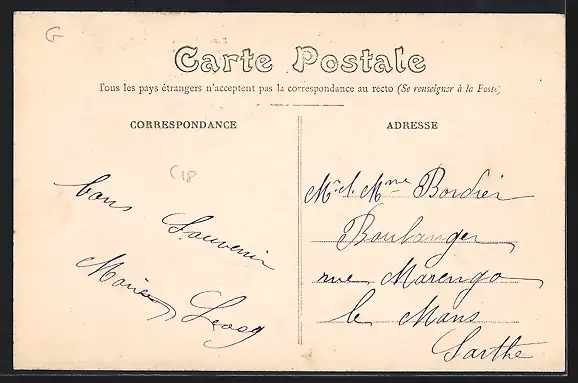 G
Carte Postale
Tous les pays étrangers n'acceptent pas la correspondance au recto (Se renseigner à la Poste)
CORRESPONDANCE
C18
bons
Souvenir
Marie
ADRESSE
Mr. & Mme Bordier
Boulanger
rue Marengo
le Mans
Sarthe